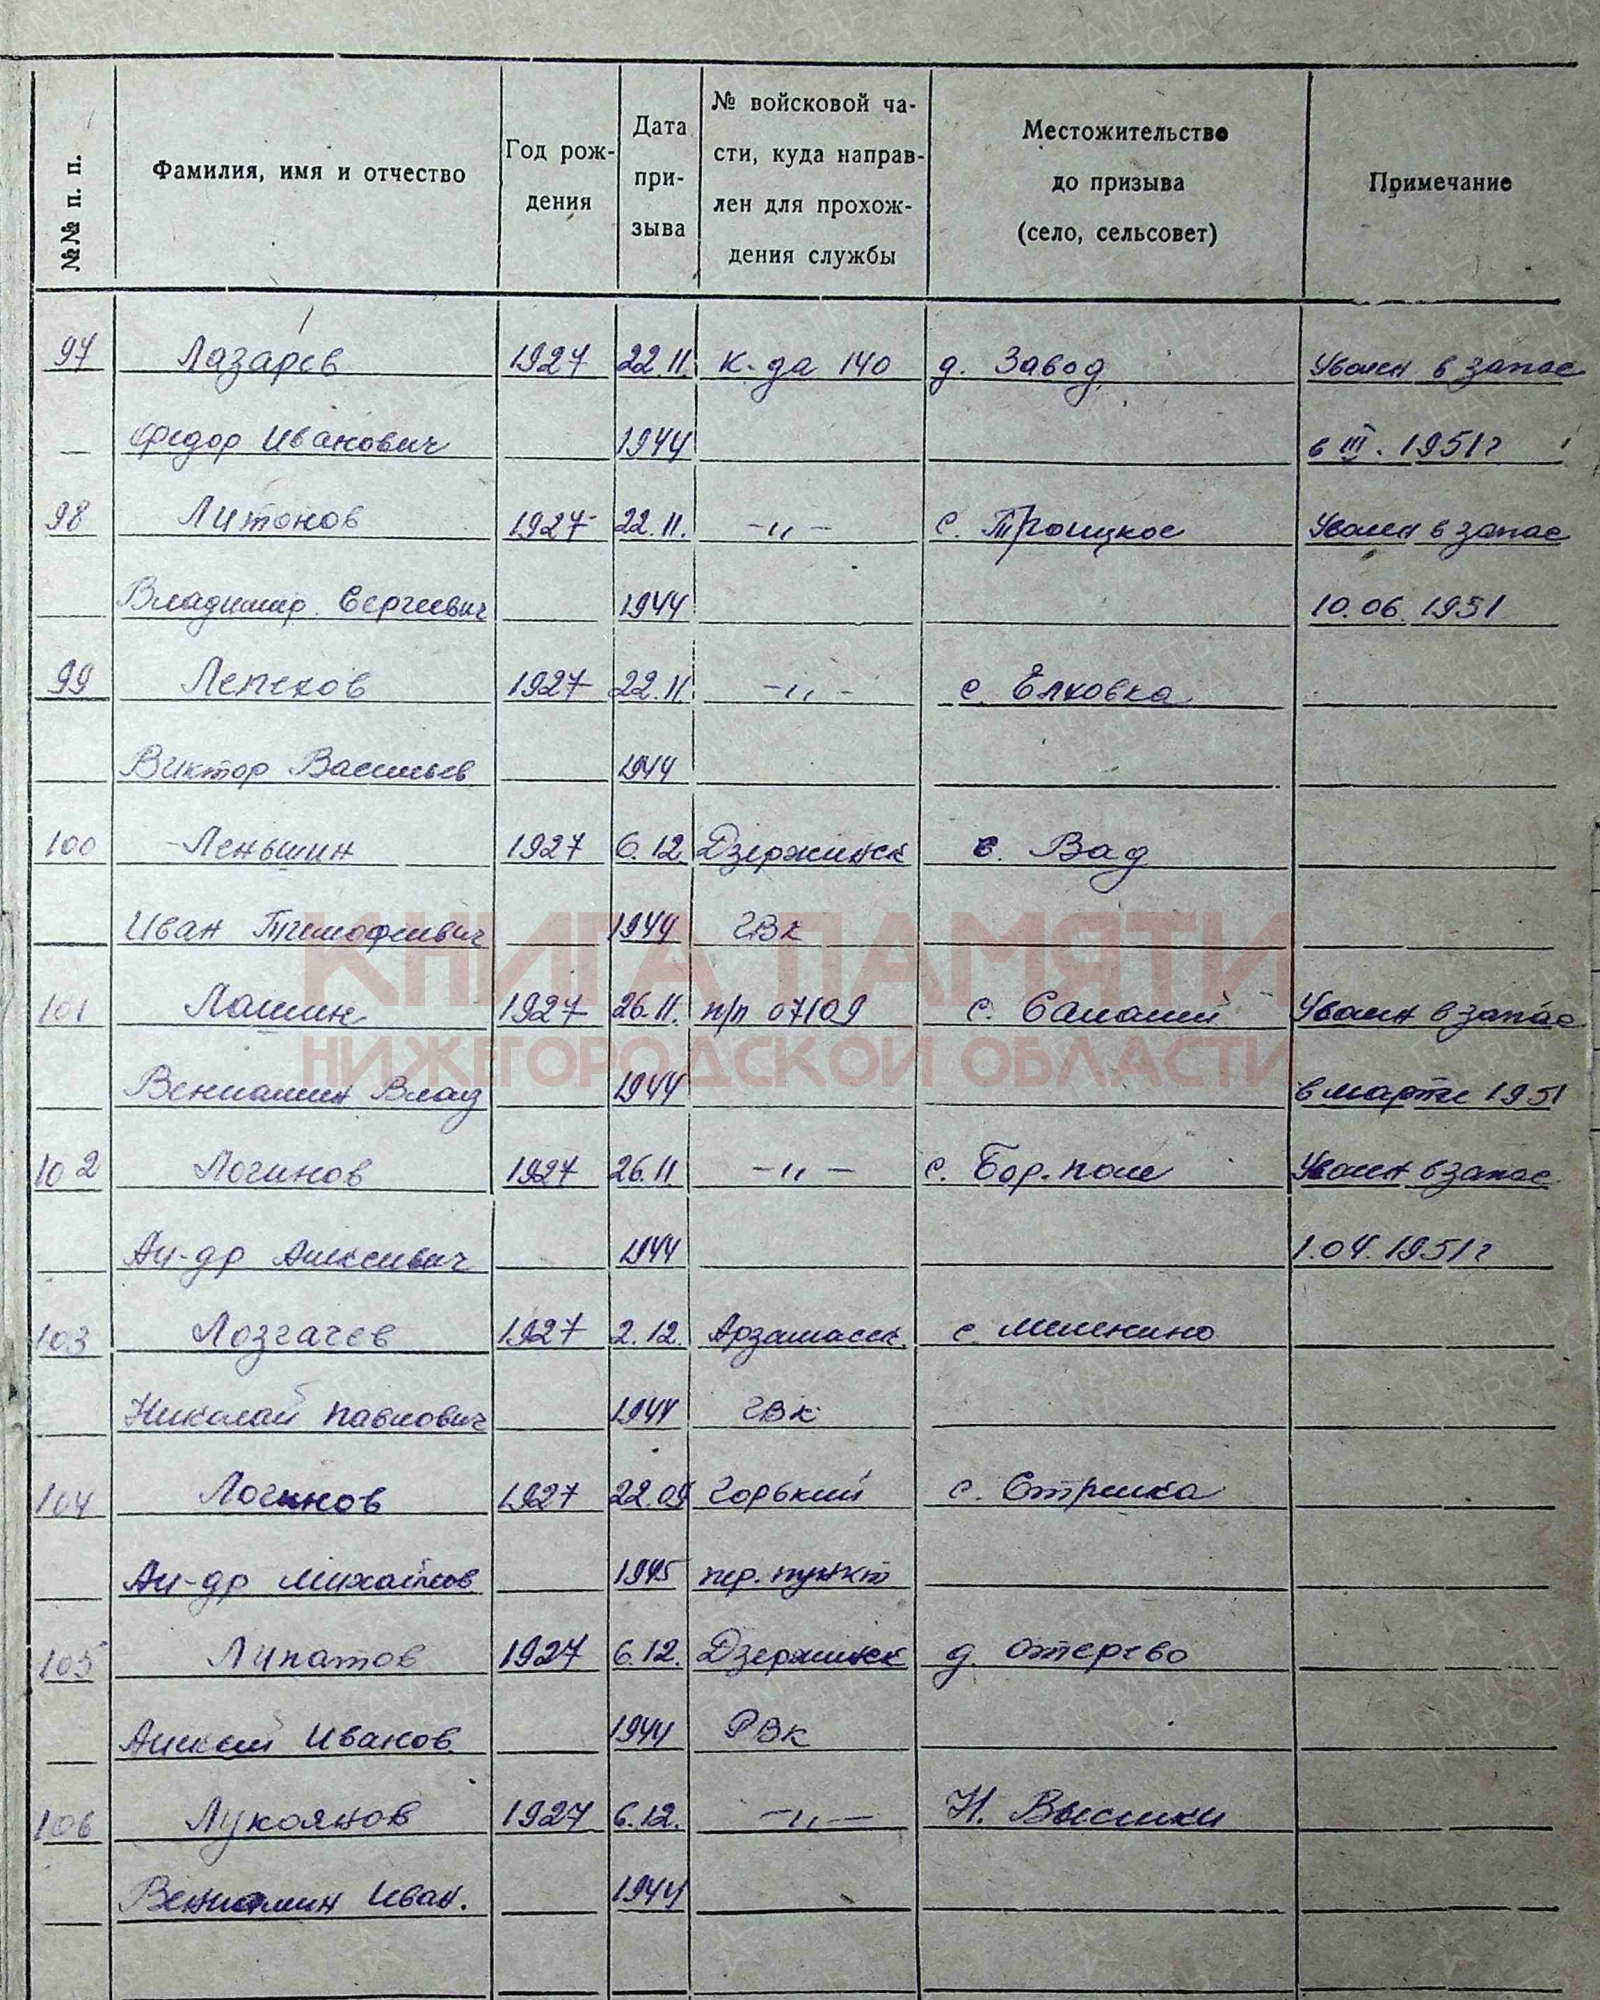 №№ п. п.
Фамилия, имя и отчество
Год рож-
дения
Дата
при-
зыва
№ войсковой ча-
сти, куда направ-
лен для прохож-
дения службы
Местожительство
до призыва
(село, сельсовет)
Примечание
97 Лазарев 1927 22.11. к-да 140 д. Завод Уволен в запас
Федор Иванович 1944 в III. 1951г
98 Литонов 1927 22.11. -"- с. Троицкое Уволен в запас
Владимир Сергеевич 1944 10.06.1951
99 Лепехов 1927 22.11. -"- с. Елховка
Виктор Васильев 1944
100 Леньшин 1927 6.12 Дзержинск с. Вад
Иван Тимофеевич 1944 ГВК
101 Лашин 1927 26.11. п/п 07109 с. Салалей Уволен в запас
Вениамин Влад 1944 в марте 1951
102 Логинов 1927 26.11 -"- с. Бор. поле Уволен в запас
Ал-др Алексеевич 1944 1.04.1951г
103 Лозгачев 1927 2.12. Арзамасск. с.
Николай Павлович 1944 ГВК
104 Логинов 1927 22.09 Горький с. Стрелка
Ал-др Михайлов 1945 пер. пункт
105 Липатов 1927 6.12. Дзержинск д. Отерево
Алексей Иванов. 1944 РВК
106 Лукоянов 1927 6.12. -"- Н.
Вениамин Иван. 1944
КНИГА ПАМЯТИ
НИЖЕГОРОДСКОЙ ОБЛАСТИ